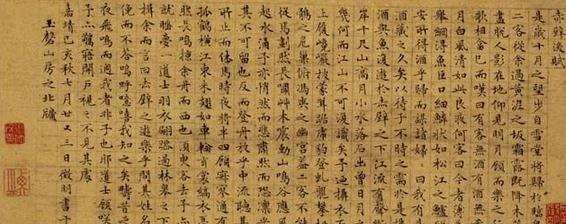 赤壁後賦
是歲十月之望步自雪堂將歸於臨
二客從余過黃泥之坂霜露既降木
盡脫人影在地仰見明月顧而樂之
歌相答已而歎曰有客無酒有酒無
月白風清如此良夜何客曰今者薄
舉網得魚巨口細鱗狀如松江之鱸
安所得酒乎歸而謀諸婦婦曰我有
酒藏之久矣以待子不時之需於是
酒與魚復遊於赤壁之下江流有聲
岸千尺山高月小水落石出曾日月
幾何而江山不可復識矣予迺攝衣
上履巉巖披蒙茸踞虎豹登虬龍攀
鶻之危巢俯馮夷之幽宮蓋二客不
從焉劃然長嘯草木震動山鳴谷應
起水涌予亦悄然而悲肅然而恐凜
其不可留也反而登舟放乎中流聽
所止而休焉時夜將半四顧寂寥適
孤鶴橫江東來翅如車輪玄裳縞衣
然長鳴掠余舟而西也須臾客去予
就睡夢一道士羽衣翩躚過臨皋之
揖余而言曰赤壁之遊樂乎問其姓
俛而不答嗚呼噫嘻我知之矣疇昔
夜飛鳴而過我者非子也耶道士顧笑
予亦驚寤開戶視之不見其處
嘉靖己亥秋七月廿又三日徵明書于
玉磬山房之北牖